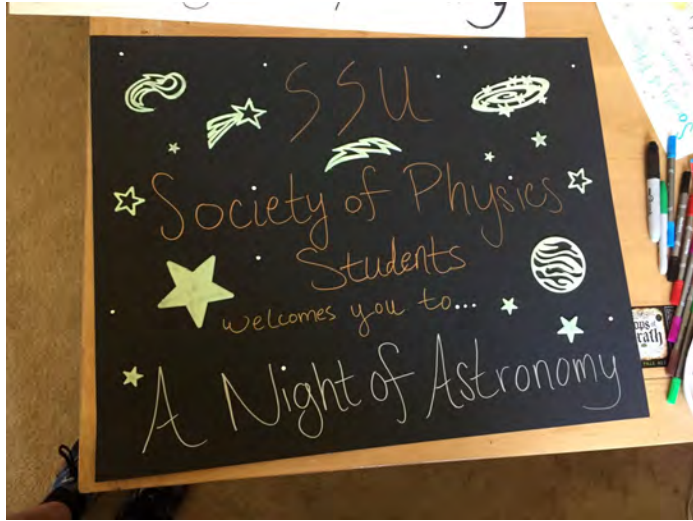 SSU
Society of Physics
Students
welcomes you to...
A Night of Astronomy